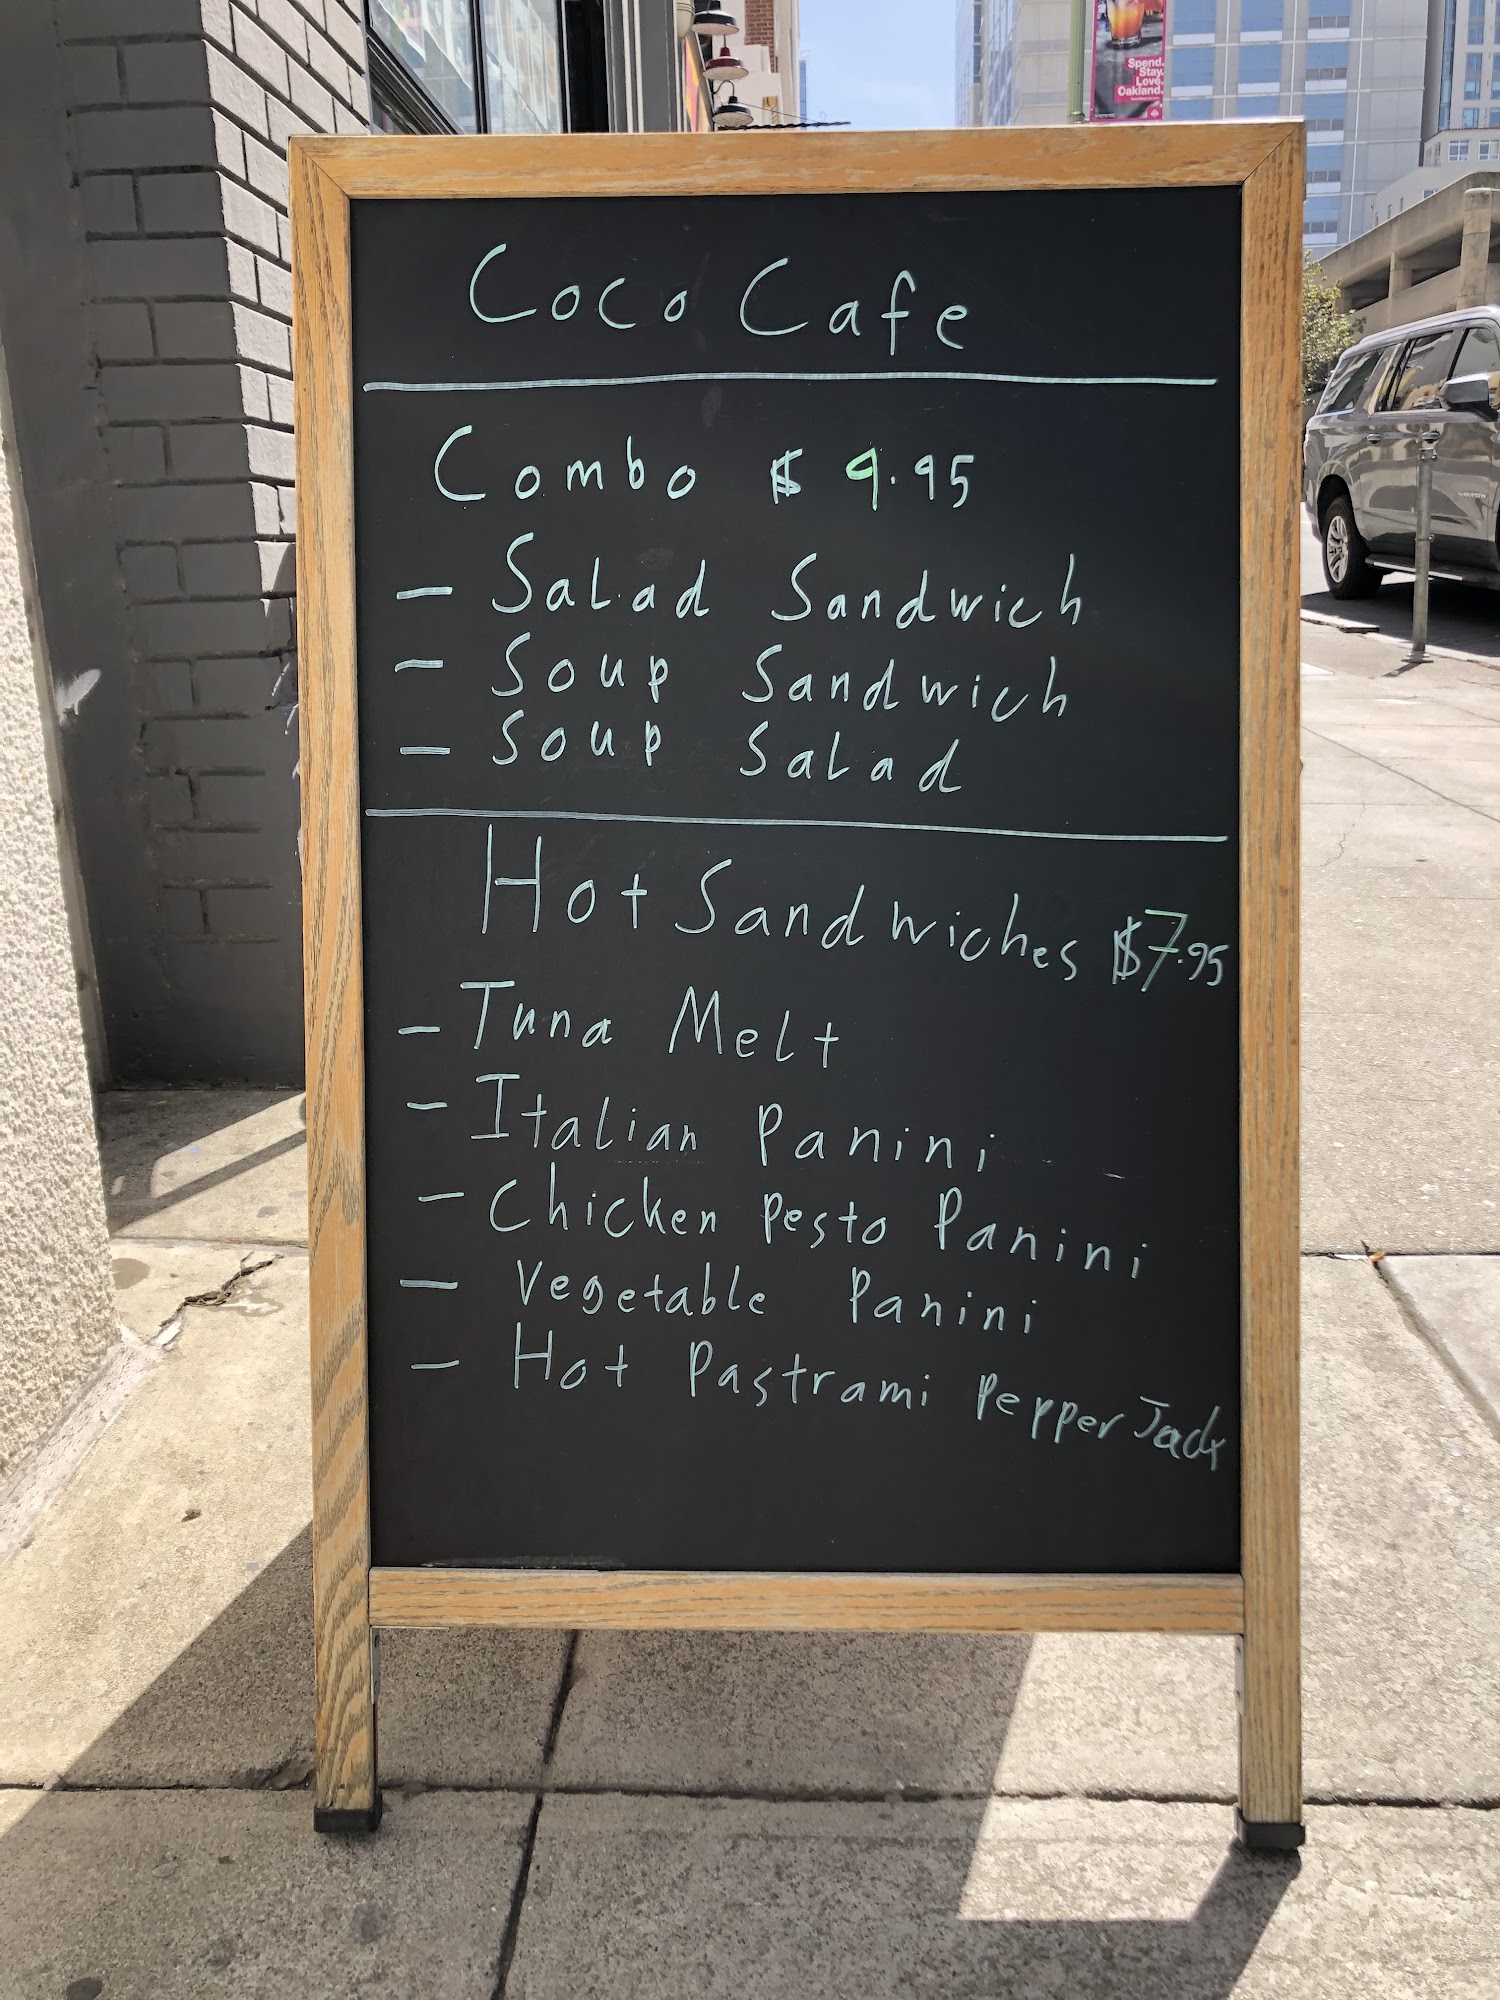 Spend.
Stay.
Love.
Oakland.
Coco Cafe
Combo $ 9.95
- Salad Sandwich
- Soup Sandwich
- Soup Salad
Hot Sandwiches $7.95
- Tuna Melt
- Italian Panini
- Chicken Pesto Panini
- Vegetable Panini
- Hot Pastrami Pepper Jack